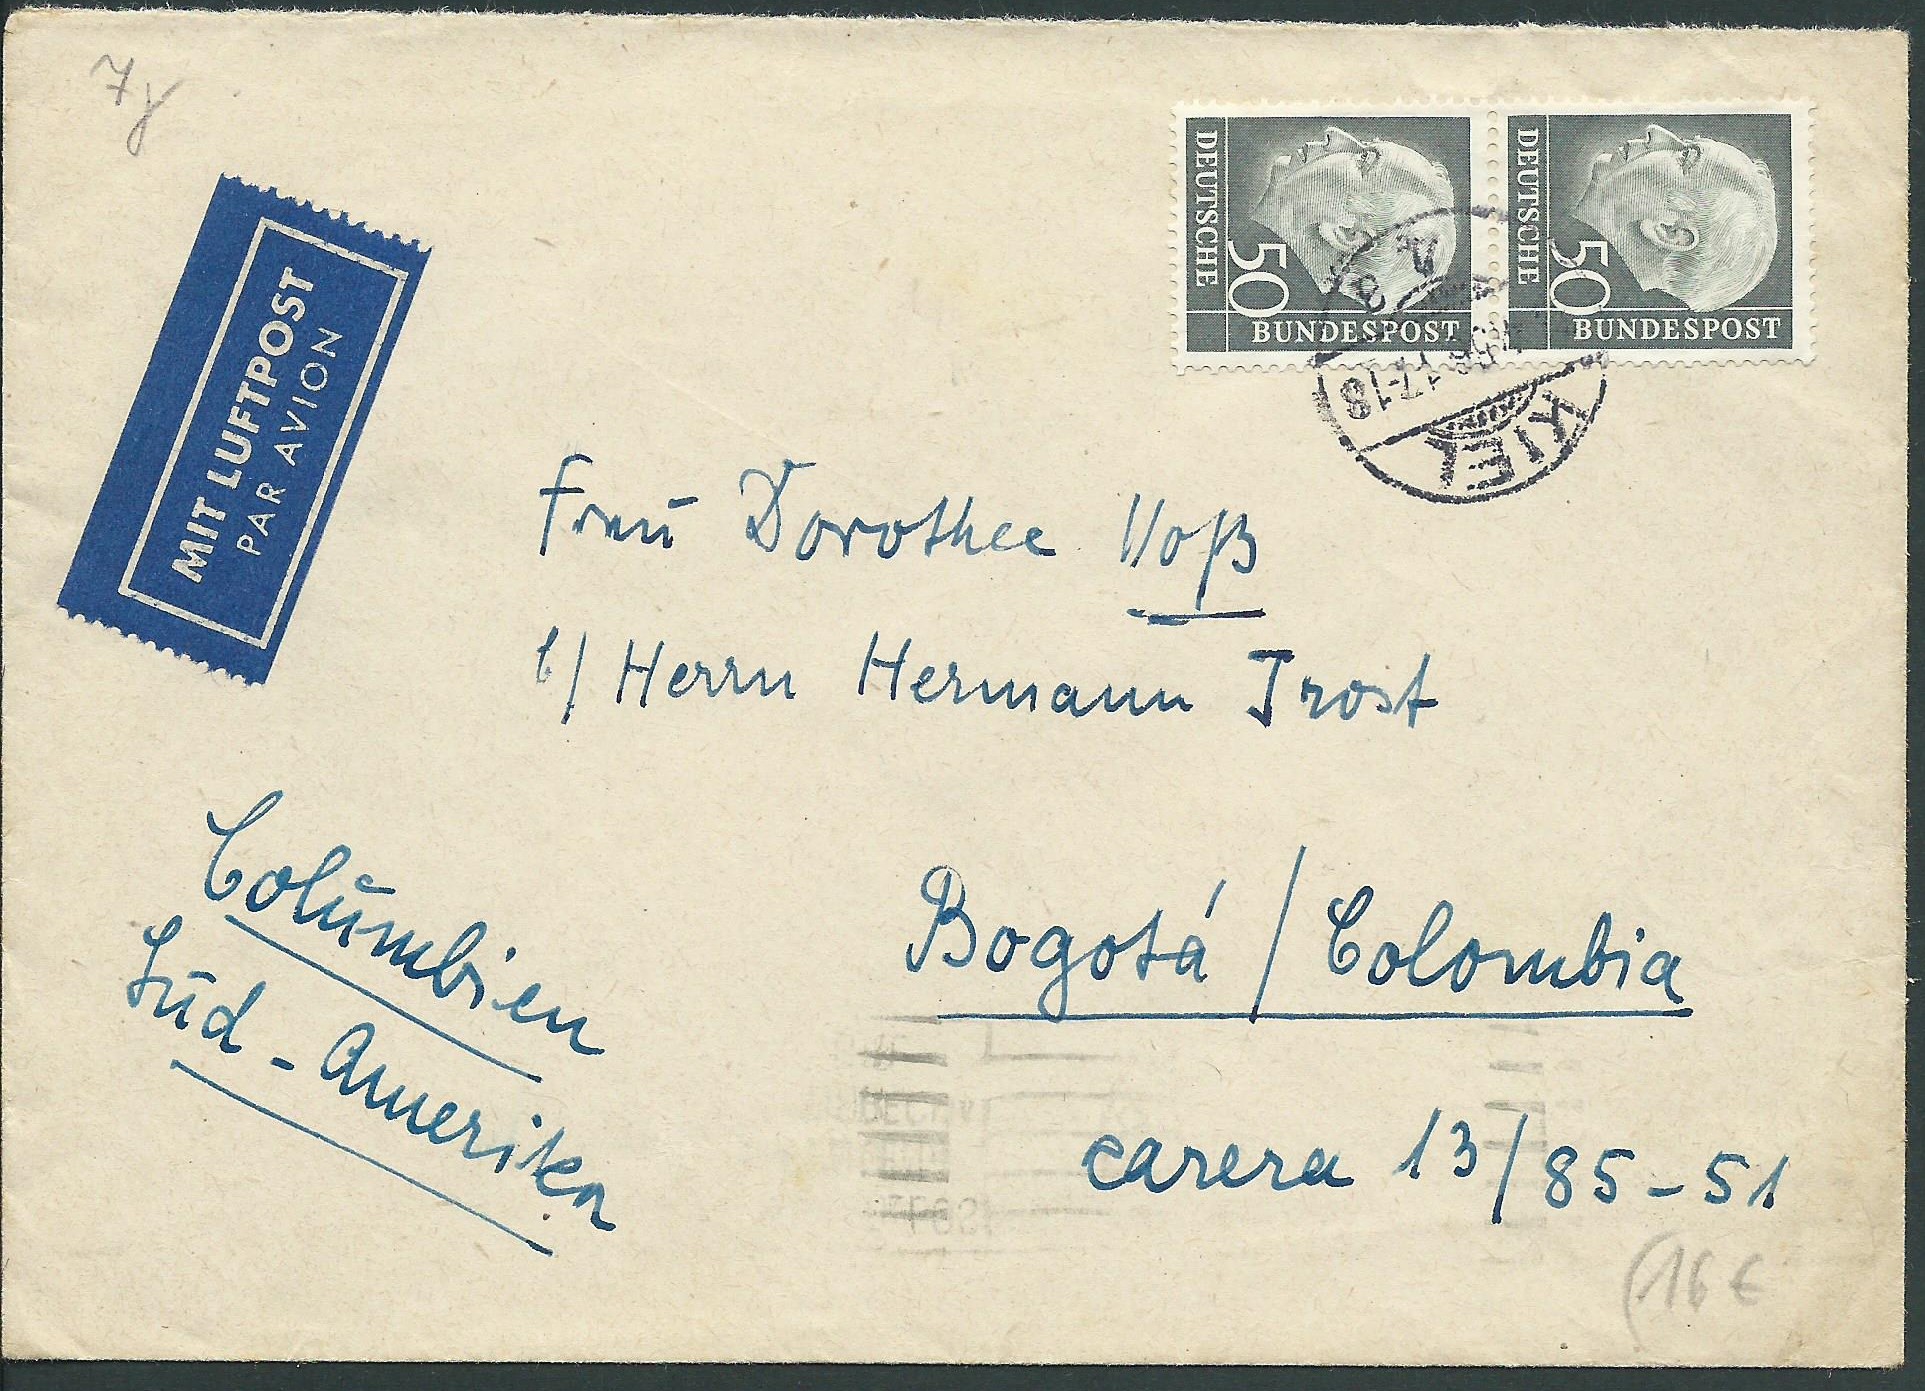 7
MIT LUFTPOST
PAR AVION
DEUTSCHE
50
BUNDESPOST
DEUTSCHE
50
BUNDESPOST
KIEL
17-18
Frau Dorothee Voß
b/ Herrn Hermann Trost
Bogotá / Colombia
carera 13/85-51
Columbien
Süd-Amerika
(16 €